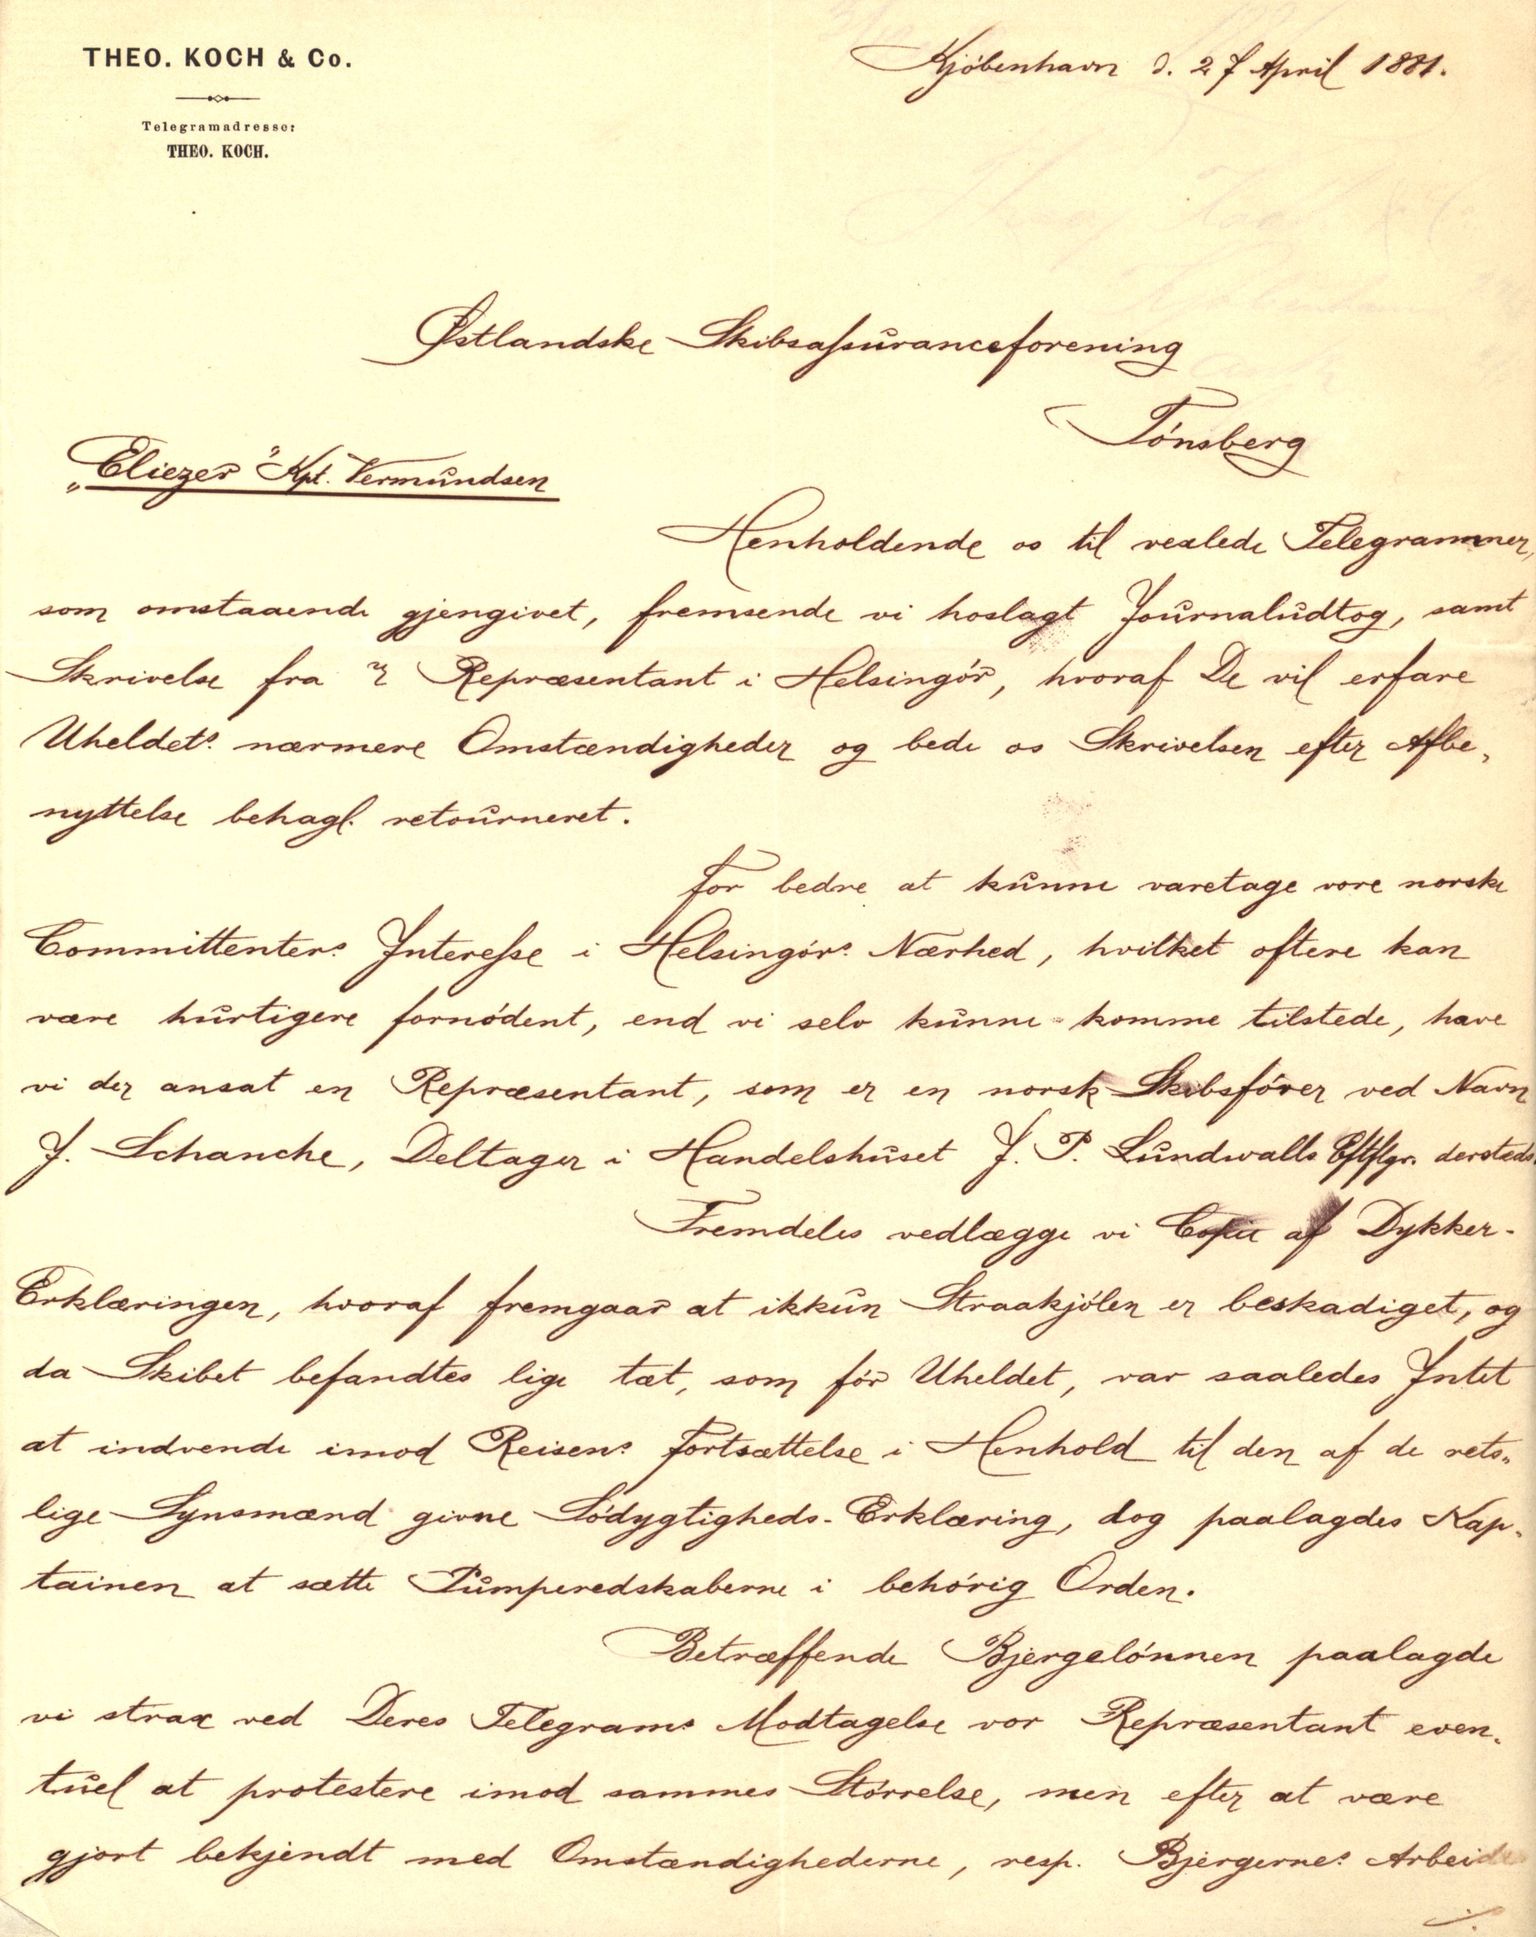 THEO. KOCH & Co.
Kjöbenhavn d. 27 April 1881.
Telegramadresse:
THEO. KOCH.
Østlandske Skibsassuranceforening
Tönsberg
„Eliezer" Kpt. Vermundsen
Henholdende os til vexlede Telegrammer,
som omstaaende gjengivet, fremsende vi hoslagt Journaludtog, samt
Skrivelse fra Repræsentant i Helsingör, hvoraf De vil erfare
Uheldets nærmere Omstændigheder og bede os Skrivelsen efter Afbe-
nyttelse behagl. retourneret.
For bedre at kunne varetage vore norske
Committenters Interesse i Helsingörs Nærhed, hvilket oftere kan
være hurtigere fornödent, end vi selv kunne komme tilstede, have
vi der ansat en Repræsentant, som er en norsk Skibsförer ved Navn
J. Schanche, Deltager i Handelshuset J. P. Lundwalls Eftflgr. dersteds.
Fremdeles vedlægge vi Copie af Dykker-
Erklæringen, hvoraf fremgaar at ikkun Straakjölen er beskadiget, og
da Skibet befandtes lige tæt, som för Uheldet, var saaledes Intet
at indvende imod Reisens Fortsættelse i Henhold til den af de rets-
lige Synsmænd givne Södygtigheds-Erklæring, dog paalagdes Kap-
tainen at sætte Pumperedskaberne i behörig Orden.
Betræffende Bjergelönnen paalagde
vi strax ved Deres Telegrams Modtagelse vor Repræsentant even-
tuel at protestere imod sammes Störrelse, men efter at være
gjort bekjendt med Omstændighederne, resp. Bjergernes Arbeide
./.